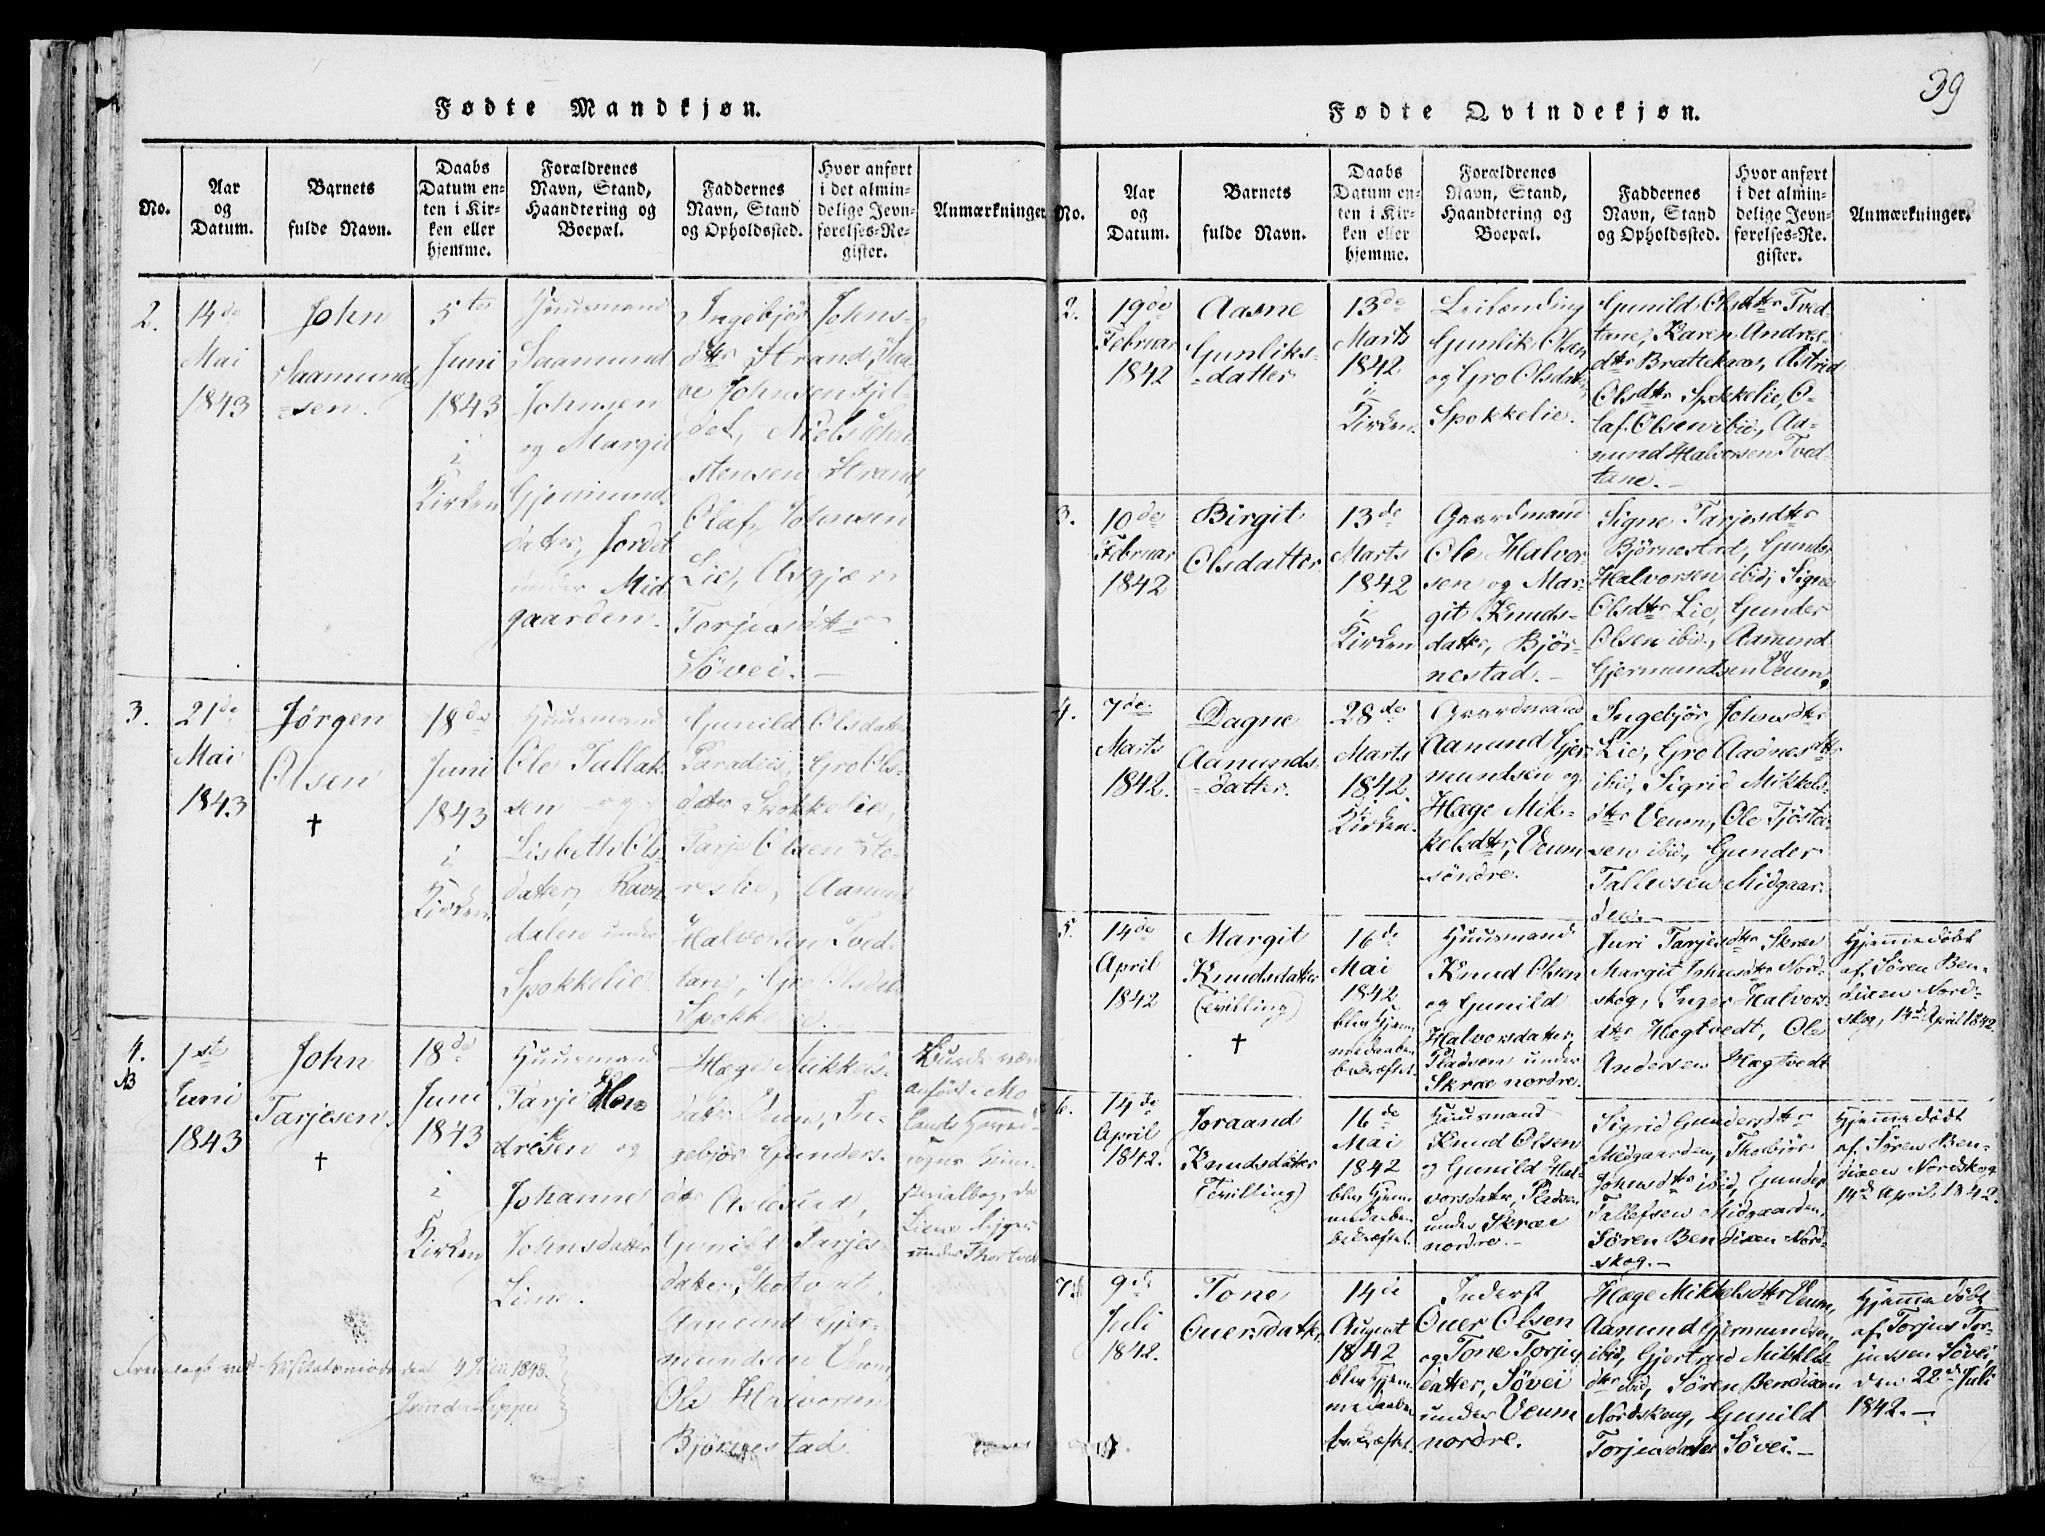 39
Fødte Mandkjøn.
No.
Aar
og
Datum.
Barnets
fulde Navn.
Daabs
Datum en-
ten i Kir-
ken eller
hjemme.
Forældrenes
Navn, Stand,
Haandtering og
Boepæl.
Faddernes
Navn, Stand
og Opholdssted.
Hvor anført
i det almin-
delige Jevn-
førelses-Re-
gister.
Anmærkninger
2.
14de
Mai
1843
John
Saamunds
=sen.
5te
Juni
1843
i
Kirken
Huusmand
Saamund
Johnsen
og Margit
Gjermunds
datter, Jordet
under Mid
gaarden.
Ingebjør Johns-
dtr Strand,
Johnsen Fjel-
det, Niels
stensen Strand
Olaf Johnsen
Lie, Asgjær
Torjusdtr
Søvei. —
3.
21de
Mai
1843
Jørgen
Olsen
†
18de
Juni
1843
i
Kirken
Huusmand
Ole Tallak-
sen og
Lisbeth Ols-
datter, Ravn
dalen under
Spokkelie.
Gunild Olsdatter
Paradiis, Gro Ols-
datter Spokkelie,
Tarje Olsen Sto-
reslie, Aanund
Halvorsen Tved-
tane, Gro Olsdatter
Spokkelie.
4.
1ste
Juni
1843
John
Tarjesen
†
18de
Juni
1843
i
Kirken
Huusmand
Tarje Hen
driksen og
Johanne
Johnsdatter
Liene.
Hæge Mikkels-
datter Veum, In-
gebjør Gunders-
dtr Aslestad,
Gunild Tarjes-
datter, Thotvedt,
Aanund Gjer-
mundsen Veum,
Ole Halvorsen
Bjørnestad.
Burde være
anført i Mo
lands
Liene ligger
under Thortvedt
Fremlagt ved Visitatsmøde den 1843.
Fødte Qvindekjøn.
No.
Aar
og
Datum.
Barnets
fulde Navn.
Daabs
Datum en-
ten i Kir-
ken eller
hjemme.
Forældrenes
Navn, Stand,
Haandtering og
Boepæl.
Faddernes
Navn, Stand
og Opholdssted.
Hvor anført
i det almin-
delige Jevn-
førelses-Re-
gister.
Anmærkninger.
2.
19de
Februar
1842
Aasne
Gunliks-
=datter
13de
Marts
1842
i
Kirken.
Leilænding
Gunlik Olsen
og Gro Olsdatter
Spokkelie.
Gunild Olsdtr Tved
tane, Karen Andres-
dtr Bratteknæs, Astrid
Olsdtr Spokkelie, O-
laf Olsen ibid., Aa-
nund Halvorsen Tved-
tane. —
3.
10de
Februar
1842
Birgit
Olsdatter
13de
Marts
1842
i
Kirken
Gaardmand
Ole Halvor-
sen og Mar-
git Knuds-
datter, Bjør-
nestad. —
Signe Tarjesdtr
Bjørnestad, Gunder
Halvorsen ibid, Signe
Olsdtr Lie, Gunder
Olsen ibid., Aanund
Gjermundsen Veum,
4.
7de
Marts
1842.
Dagne
Aanunds-
=datter.
28de
Marts
1842.
i
Kirken.
Gaardmand
Aanund Gjer-
mundsen og
Hæge Mik-
kelsdtr, Veum
søndre.
Ingebjør Johnsdtr
Lie, Gro Aasnesdtr
ibid, Sigrid Mikkels-
dtr Veum, Ole Tjøsta-
sen ibid, Gunder
Tallevsen Midgaar-
den. —
5.
14de
April
1842
Margit
Knudsdatter
(Tvilling)
†
16de
Mai
1842.
blev Hjem-
medaaben
bekræftet.
Huusmand
Knud Olsen
og Gunild
Halvorsdatter,
Pladsen under
Skræe nordre.
Juri Tarjesdtr Skræe
Margit Johnsdtr Nord-
skog, Inger Halvors-
dtr Hægtvedt, Ole
Andersen Hægtvedt
Hjemmedøbt
af Søren Ben-
dixen Nord-
skog, 14de April 1842
6.
14de
April
1842.
Joraand
Knudsdatter
(Tvilling)
16de
Mai
1842
blev Hjem-
medaaben
bekræftet.
Huusmand
Knud Olsen
og Gunild Hal-
vorsdatter, Pladsen
under Skræe
nordre. —
Sigrid Gundersdtr
Midgaarden, Thorbjør
Johnsdtr ibid, Gunder
Tallefsen Midgaarden,
Søren Bendixen Nord-
skog. —
Hjemmedøbt
af Søren Ben-
dixen Nordskog
14de April, 1842.
7.
9de
Juli
1842.
Tone
Ouersdatter
14de
August
1842
blev Hjem
medaaben
bekræftet.
Inderst
Ouer Olsen
og Tone Torjus
datter, Søvei
under Veum
nordre.
Hæge Mikkelsdtr Veum,
Aanund Gjermundsen
ibid, Gjertrud Mikkels
dtr ibid, Søren Bendixen
Nordskoug, Gunild
Torjusdatter Søvei —
Hjemmedøbt
af Torjus Tor-
jussen Søvei,
den 22de Juli
1842. —